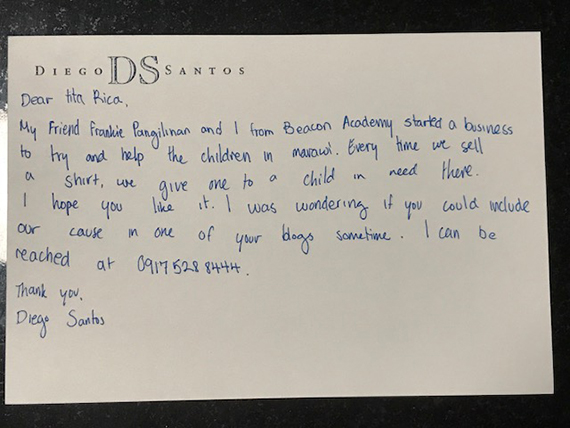 DIEGO DS SANTOS
Dear tita Rica,
My Friend Frankie Pangilinan and I from Beacon Academy started a business
to try and help the children in marawi. Every time we sell
a shirt, we give one to a child in need there.
I hope you like it. I was wondering if you could include
our cause in one of your blogs sometime. I can be
reached at 0917 528 8444.
Thank you,
Diego Santos